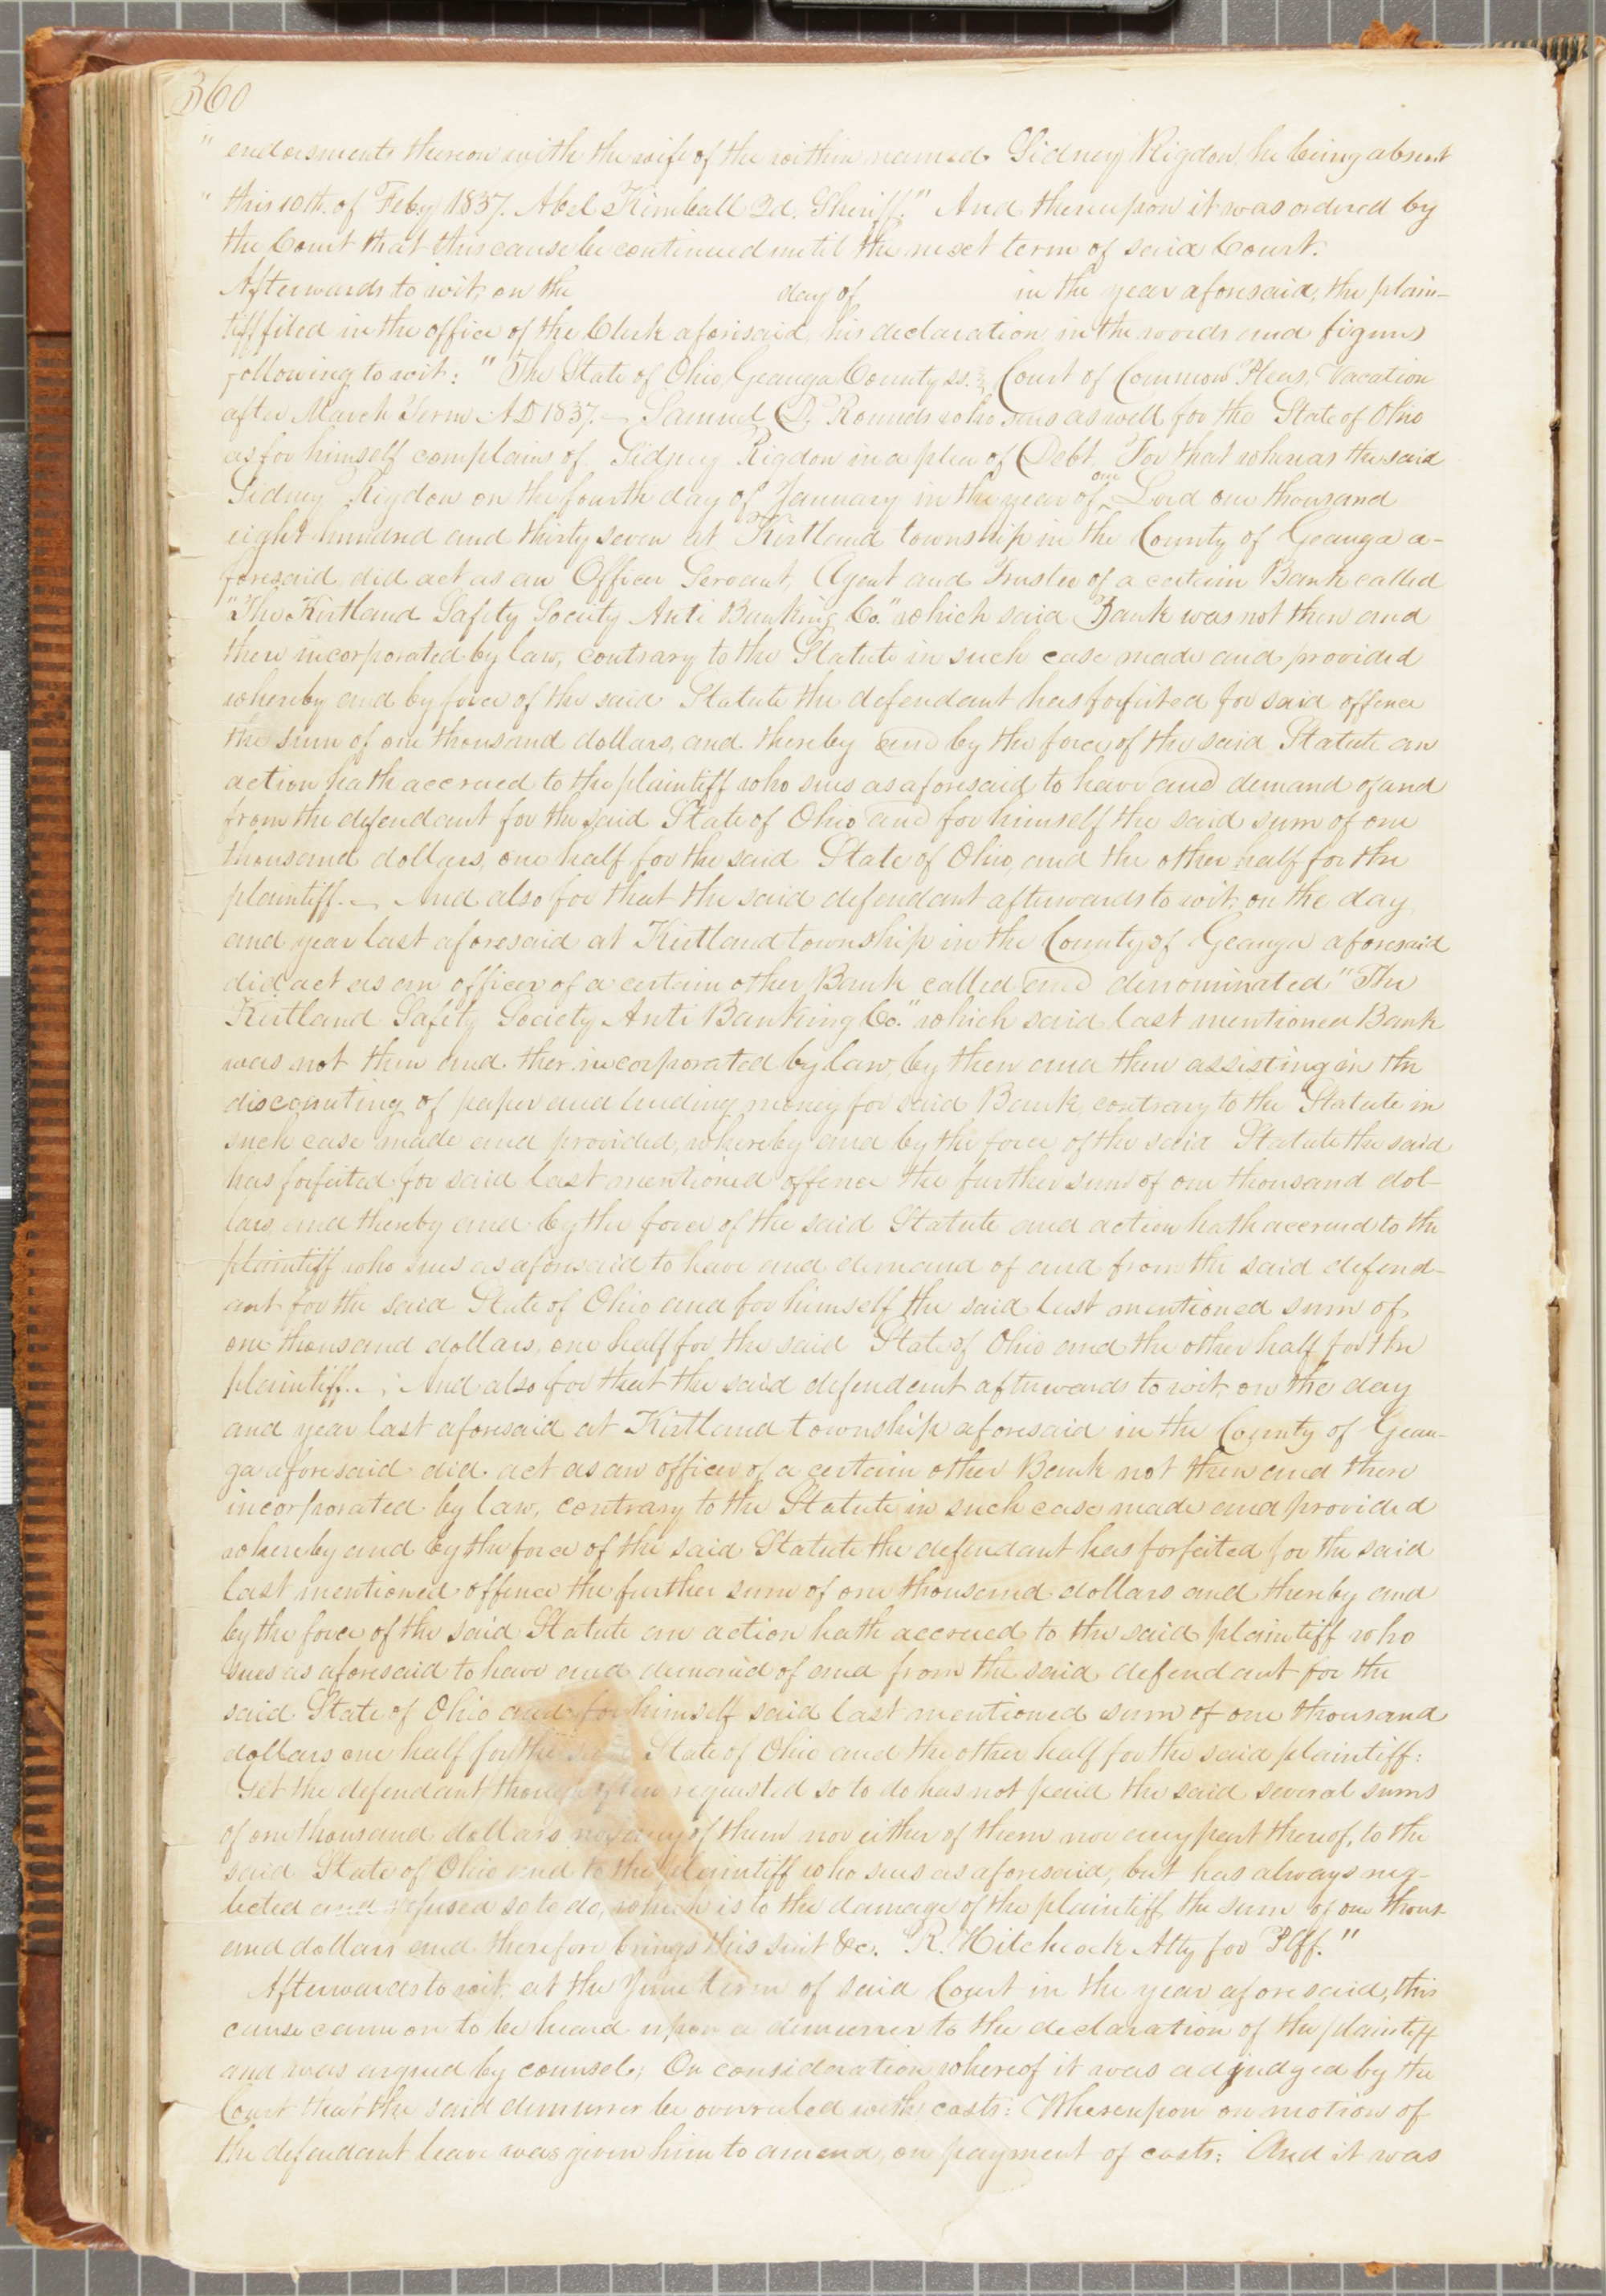 360
" endorsments thereon with the wife of the within named Sidney Rigdon, he being absent
" this 10th. of Feby 1837. Abel Kimball 2d. Sheriff." And thereupon it was ordered by
the Court that this cause be continued until the next term of said Court.
Afterwards to wit, on the day of in the year aforesaid, the plain-
tiff filed in the office of the Clerk aforesaid, his declaration in the words and figures
following to wit: "The State of Ohio, Geauga County ss. Court of Common Pleas, Vacation
after March Term AD 1837. – Samuel D. Rounds who sues as well for the State of Ohio
as for himself complains of Sidney Rigdon in a plea of Debt, For that whereas the said
Sidney Rigdon on the fourth day of January in the year of our Lord one thousand
eight hundred and thirty seven at Kirtland township in the County of Geauga a-
foresaid, did act as an Officer Servant, Agent and Trustee of a certain Bank called
"The Kirtland Safety Society Anti Banking Co." which said Bank was not then and
there incorporated by law, contrary to the Statute in such case made and provided
whereby and by force of the said Statute the defendant has forfeited for said offence
the sum of one thousand dollars, and thereby and by the force of the said Statute an
action hath accrued to the plaintiff who sues as aforesaid to have and demand of and
from the defendant for the said State of Ohio and for himself the said sum of one
thousand dollars, one half for the said State of Ohio, and the other half for the
plaintiff. – And also for that the said defendant afterwards to wit, on the day
and year last aforesaid at Kirtland township in the County of Geauga aforesaid
did act as an officer of a certain other Bank called and denominated "The
Kirtland Safety Society Anti Banking Co." which said last mentioned Bank
was not then and ther incorporated by law, by then and then assisting in the
discounting of paper and lending money for said Bank, contrary to the Statute in
such case made and provided, whereby and by the force of the said Statute the said
has forfeited for said last mentioned offence the further sum of one thousand dol-
lars, and thereby and by the force of the said Statute and action hath accrued to the
plaintiff who sues as aforesaid to have and demand of and from the said defend-
ant for the said State of Ohio and for himself the said last mentioned sum of
one thousand dollars, one half for the said State of Ohio and the other half for the
plaintiff. – And also for that the said defendant afterwards to wit, on the day
and year last aforesaid at Kirtland township aforesaid in the County of Geau-
ga aforesaid did act as an officer of a certain other Bank not then and there
incorporated by law, contrary to the Statute in such case made and provided
whereby and by the force of the said Statute the defendant has forfeited for the said
last mentioned offence the further sum of one thousand dollars and thereby and
by the force of the said Statute an action hath accrued to the said plaintiff who
sues as aforesaid to have and demand of and from the said defendant for the
said State of Ohio and for himself said last mentioned sum of one thousand
dollars one half for the said State of Ohio and the other half for the said plaintiff:
Yet the defendant though often requested so to do has not paid the said several sums
of one thousand dollars nor any of them nor either of them nor any part thereof, to the
said State of Ohio and to the plaintiff who sues as aforesaid, but has always neg-
lected and refused so to do, which is to the damage of the plaintiff the sum of one thous-
and dollars and therefore brings this suit &c. R. Hitchcock Atty for Plff."
Afterwards to wit, at the June term of said Court in the year aforesaid, this
cause came on to be heard upon a demurrer to the declaration of the plaintiff
and was argued by counsel; On consideration whereof it was adjudged by the
Court that the said demurrer be overruled with costs: Whereupon on motion of
the defendant leave was given him to amend, on payment of costs: And it was